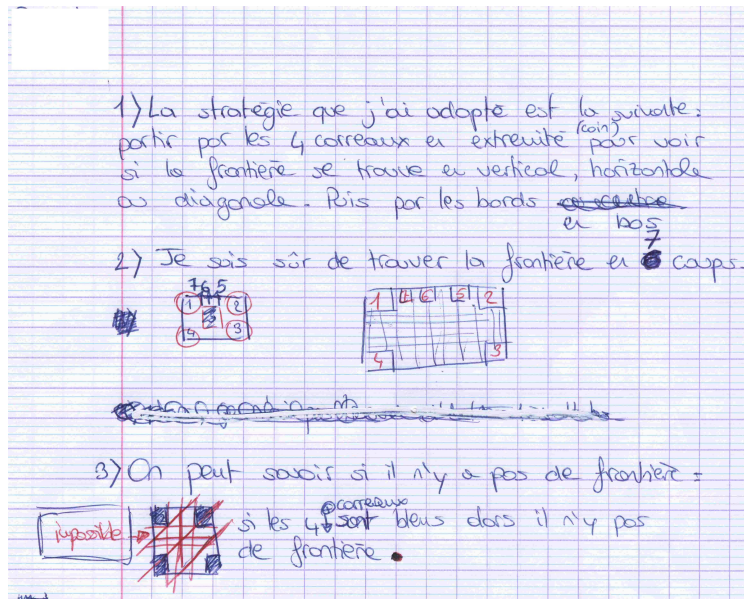 1) La stratégie que j'ai adopté est la suivante :
partir par les 4 carreaux en extremité (coin) pour voir
si la frontière se trouve en vertical, horizontale
ou diagonale. Puis par les bords
en bas
2) Je suis sûr de trouver la frontière en 7 coups.
7 6 5
1 2
4 3
1 7 6 5 2
4 3
3) On peut savoir si il n'y a pas de frontière :
impossible
si les 4 carreaux sont bleus alors il n'y pas
de frontière.